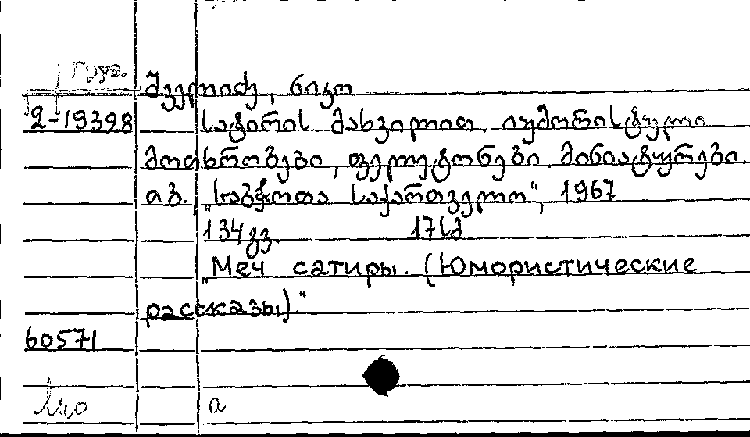 Груз.
შველიძე, ნიკო
2-19398 სატირის მახვილით. იუმორისტული
მოთხრობები, ფელეტონები. მინიატურები.
თბ. „საბჭოთა საქართველო“, 1967
134 გვ. 17 სმ
„Меч сатиры. (Юмористические
рассказы).“
60571
а